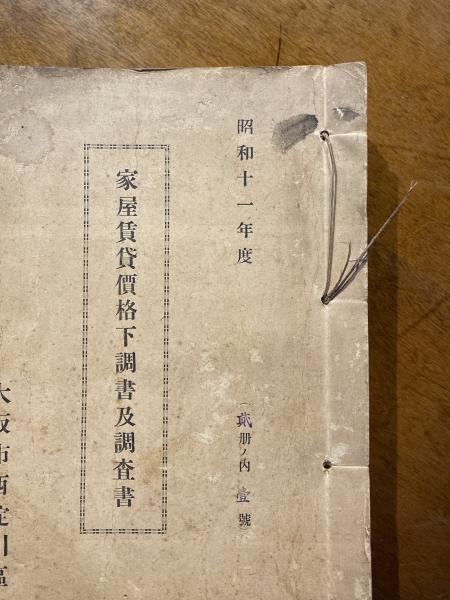 昭和十一年度
(貳册ノ内壹號)
家屋賃貸價格下調書及調査書
大阪市西淀川區